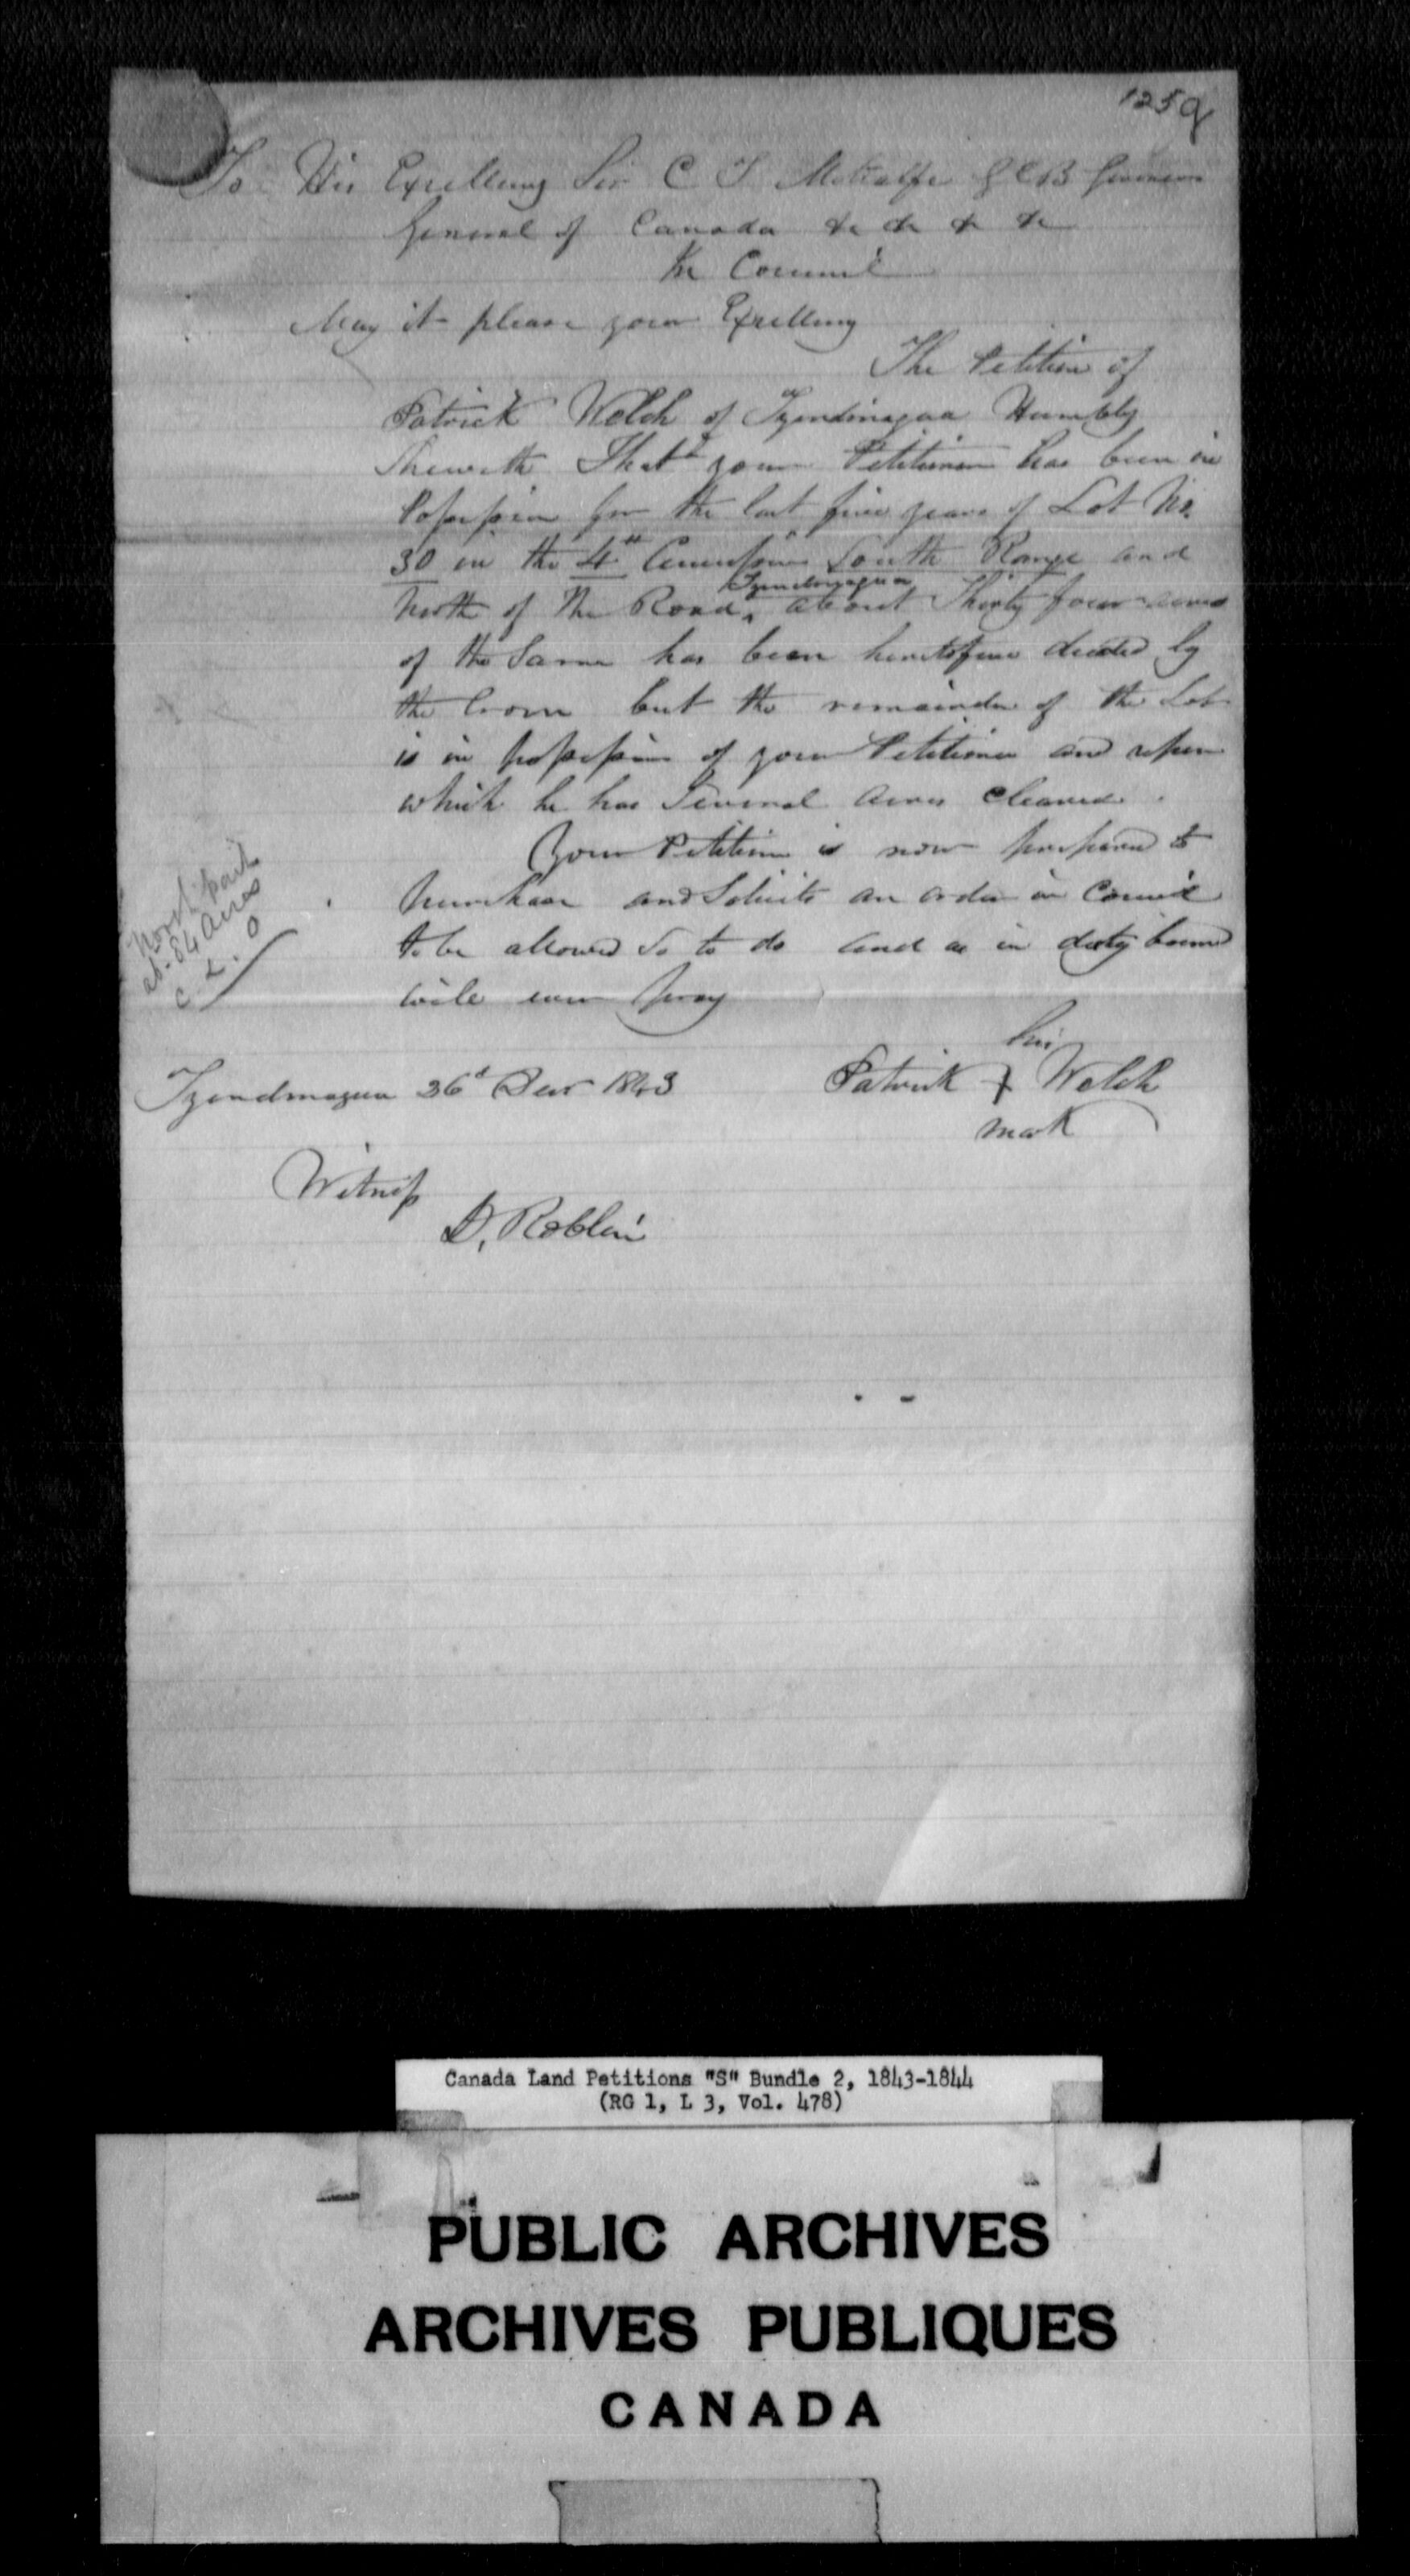 125q
To His Excellency Sir C T Metcalfe GCB Governor
General of Canada &c &c & &c
In Council
May it please your Excellency
The Petition of
Patrick Welch of Tyendinagua Humbly
Sheweth That your Petitioner has been in
Possession for the last five years of Lot No.
30 in the 4th Concession South Range and
Tyendinagua
North of the Road, about Thirty four acres
of the Same has been heretofore deeded by
the Crown but the remainder of the Lot
is in possession of your Petitioner and upon
which he has Several acres cleared.
Your Petitioner is now prepared to
purchase and Solicits an order in Council
to be allowed So to do and as in duty bound
will ever pray
North part
ab. 84 Acres
C. L. O
his
Tyendinagua 26d Decr 1843 Patrick Welch
mark
Witness
D. Roblin
Canada Land Petitions "S" Bundle 2, 1843-1844
(RG 1, L 3, Vol. 478)
PUBLIC ARCHIVES
ARCHIVES PUBLIQUES
CANADA